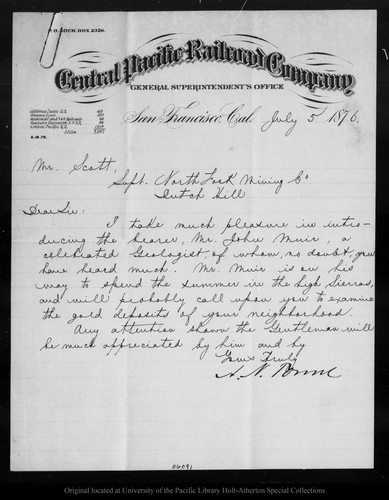 P.O. LOCK BOX 2328.
Central Pacific Railroad Company
GENERAL SUPERINTENDENT'S OFFICE
San Francisco, Cal. July 5 1876.
Mr. Scott,
Supt. North Fork Mining Co
Dutch Hill
Dear Sir:
I take much pleasure in intro-
ducing the bearer, Mr. John Muir, a
celebrated Geologist, of whom, no doubt, you
have heard much. Mr. Muir is on his
way to spend the summer in the high Sierras,
and will probably call upon you to examine
the gold deposits of your neighborhood.
Any attention shown the Gentleman will
be much appreciated by him and by
Yours Truly
A. N.
06091
Original located at University of the Pacific Library Holt-Atherton Special Collections